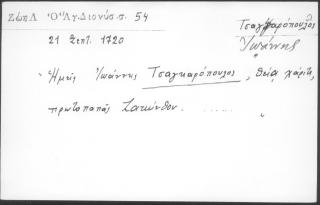 Ζώη Λ Ὁ Ἅγ. Διονύσ. σ. 54
Τσαγκαρόπουλος
Ἰωάννης
21 Σεπτ. 1720
"Ἡμεῖς Ἰωάννης Τσαγκαρόπουλος, θείᾳ χάριτι,
πρωτοπαπᾶς Ζακύνθου ........ "